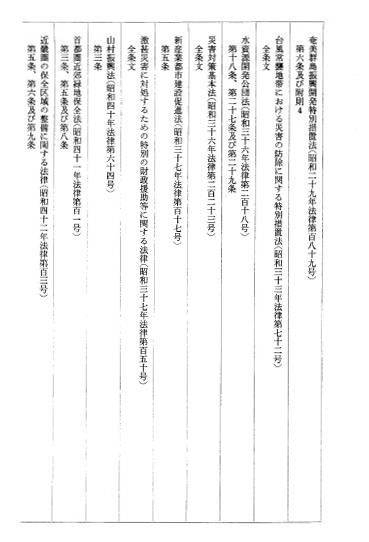 奄美群島振興開発特別措置法（昭和二十九年法律第百八十九号）
第六条及び附則４
台風常襲地帯における災害の防除に関する特別措置法（昭和三十三年法律第七十二号）
全条文
水資源開発公団法（昭和三十六年法律第二百十八号）
第十八条、第二十七条及び第二十九条
災害対策基本法（昭和三十六年法律第二百二十三号）
全条文
新産業都市建設促進法（昭和三十七年法律第百十七号）
第五条
激甚災害に対処するための特別の財政援助等に関する法律（昭和三十七年法律第百五十号）
全条文
山村振興法（昭和四十年法律第六十四号）
第三条
首都圏近郊緑地保全法（昭和四十一年法律第百一号）
第三条、第五条及び第八条
近畿圏の保全区域の整備に関する法律（昭和四十二年法律第百三号）
第五条、第六条及び第九条